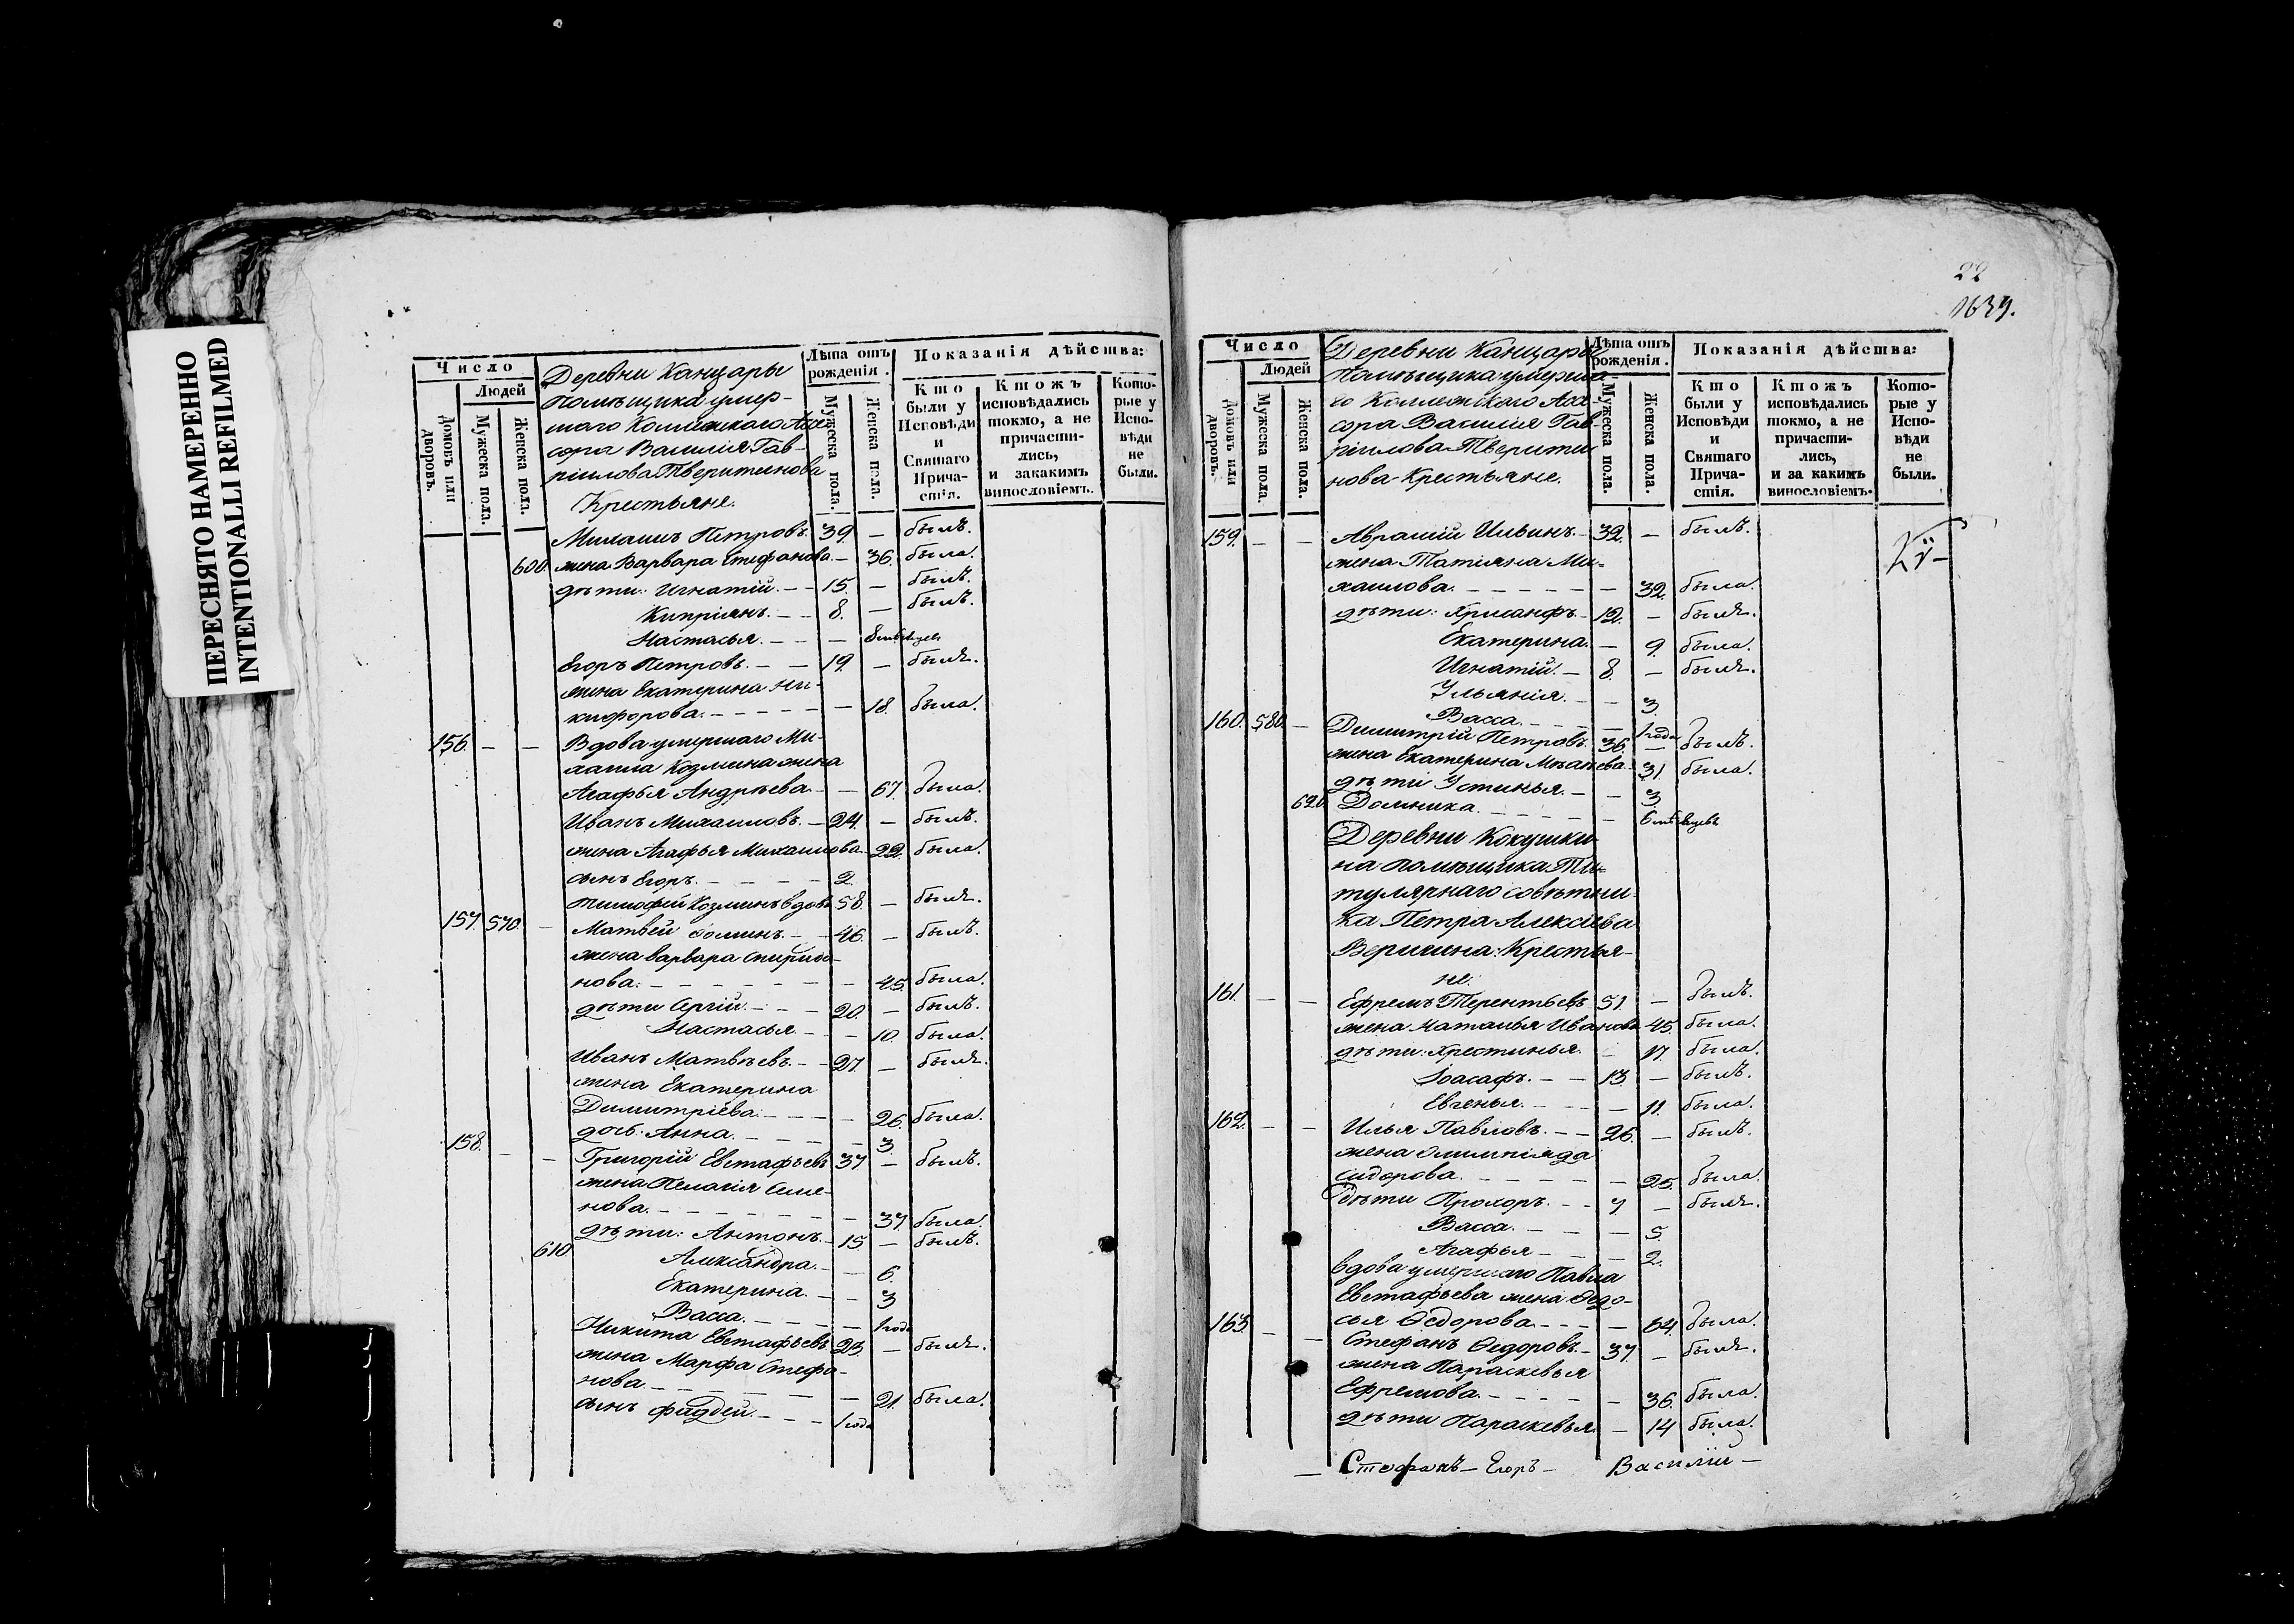 ПЕРЕСНЯТО НАМЕРЕННО
INTENTIONALLI REFILMED
Число
Людей
Домовъ или дворовъ.
Мужеска пола.
Женска пола.
Деревни Канцары
Помѣщика умер-
шаго Колежскаго Ассе
сора Василія Гав-
ріилова Тверитинова
Крестьяне.
Лѣта отъ рожденія.
Мужеска пола.
Женска пола.
Показанія дѣйства:
Кто были у Исповѣди и Святаго Прича-стія.
Ктожъ исповѣдались токмо, а не причасти-лись, и закакимъ винословіемъ.
Кото-рые у Испо-вѣди не были.
Петровъ. 39. — былъ.
600. жена Варвара Стефанова. — 36. была.
дѣти: Игнатій. — — 15. — былъ.
Кипріянъ. — — 8. — былъ.
Настасья. — — — 8 мѣсяцев
Егоръ Петровъ. — — 19. — былъ.
жена Екатерина Ни-
кифорова. — — — — — 18. была.
156. — — Вдова умершаго Ми-
хаила Козмина жена
Агафья Андрѣева. — — 67. была.
Иванъ Михаиловъ. — 24. — былъ.
жена Агафья Михаилова. 22. была.
сынъ Егоръ. — — — — 2.
Тимофей Козминъ вдовъ 58. — былъ.
157. 570. — Матвей Фоминъ. — — 46. — былъ.
жена Варвара Спиридо-
нова. — — — — — — — 45. была.
дѣти Сергій. — — — 20. — былъ.
Настасья. — — 10. была.
Иванъ Матвѣевъ. — — 27 — былъ.
жена Екатерина
Димитріева. — — — — 26. была.
дочь. Анна. — — — — — 3.
158. — — Григорій Евстафьевъ 37 — былъ.
жена Пелагія Семе-
нова. — — — — — — — 37. была.
дѣти: Антонъ. — 15. — былъ.
610 Александра. — — 6.
Екатерина. — — 3
Васса. — — — — 1 года
Никита Евстафьевъ 23. — былъ.
жена Марфа Стефа-
нова. — — — — — — 21. была.
сынъ Фаддей. — — — 1 года
22
1639.
Число
Людей
Домовъ или дворовъ.
Мужеска пола.
Женска пола.
Деревни Канцары
Помѣщика умерша-
го Коллежскаго Ассе-
сора Василія Гав-
ріилова Тверити
нова Крестьяне.
Лѣта отъ рожденія.
Мужеска пола.
Женска пола.
Показанія дѣйства:
Кто были у Исповѣди и Святаго Прича-стія.
Ктожъ исповѣдались токмо, а не причасти-лись, и за какимъ винословіемъ.
Кото-рые у Испо-вѣди не были.
159. — — Аврамій Ильинъ. — 32. — былъ.
жена Татіяна Ми-
хаилова. — — — — — — 32. была.
дѣти: Хрисанфъ. — 12. — былъ.
Екатерина. — 9. была.
Игнатій. — 8. — былъ.
Ульянія. — — 3.
Васса. — — — — 1 года
160. 580. — Димитрій Петровъ. 36. — былъ.
жена Екатерина 31. была.
дѣти Устинья. — — 3.
620 Домника. — — — — — 6 мѣсяцевъ
Деревни Кокушки-
на помѣщика Ти-
тулярнаго совѣтни-
ка Петра Алексіева
Веригина: Крестья-
не.
161. — — Ефремъ Терентьевъ 51. — былъ.
жена Наталья Иванова 45. была.
дѣти: Хрестинья. — 17. была.
Іоасафъ. — — 13 — былъ.
Евгенья. — — — — 11. была.
162. — — Илья Павловъ. — — 26. — былъ.
жена Олимпіяда
Сидорова. — — — — — — 25. была.
Дѣти Прохоръ. — — 7. — былъ.
Васса. — — — 5.
Агафья — — — 2.
вдова умершаго Павла
Евстафьева жена Ѳедо-
сья Ѳедорова. — — — — 64. была.
163. — — Стефанъ Ѳедоровъ. — 37. — былъ.
жена Параскевья
Ефремова. — — — — — 36. была.
дѣти Параскевья — 14 была.
— Стефанъ — Егоръ — Василій —